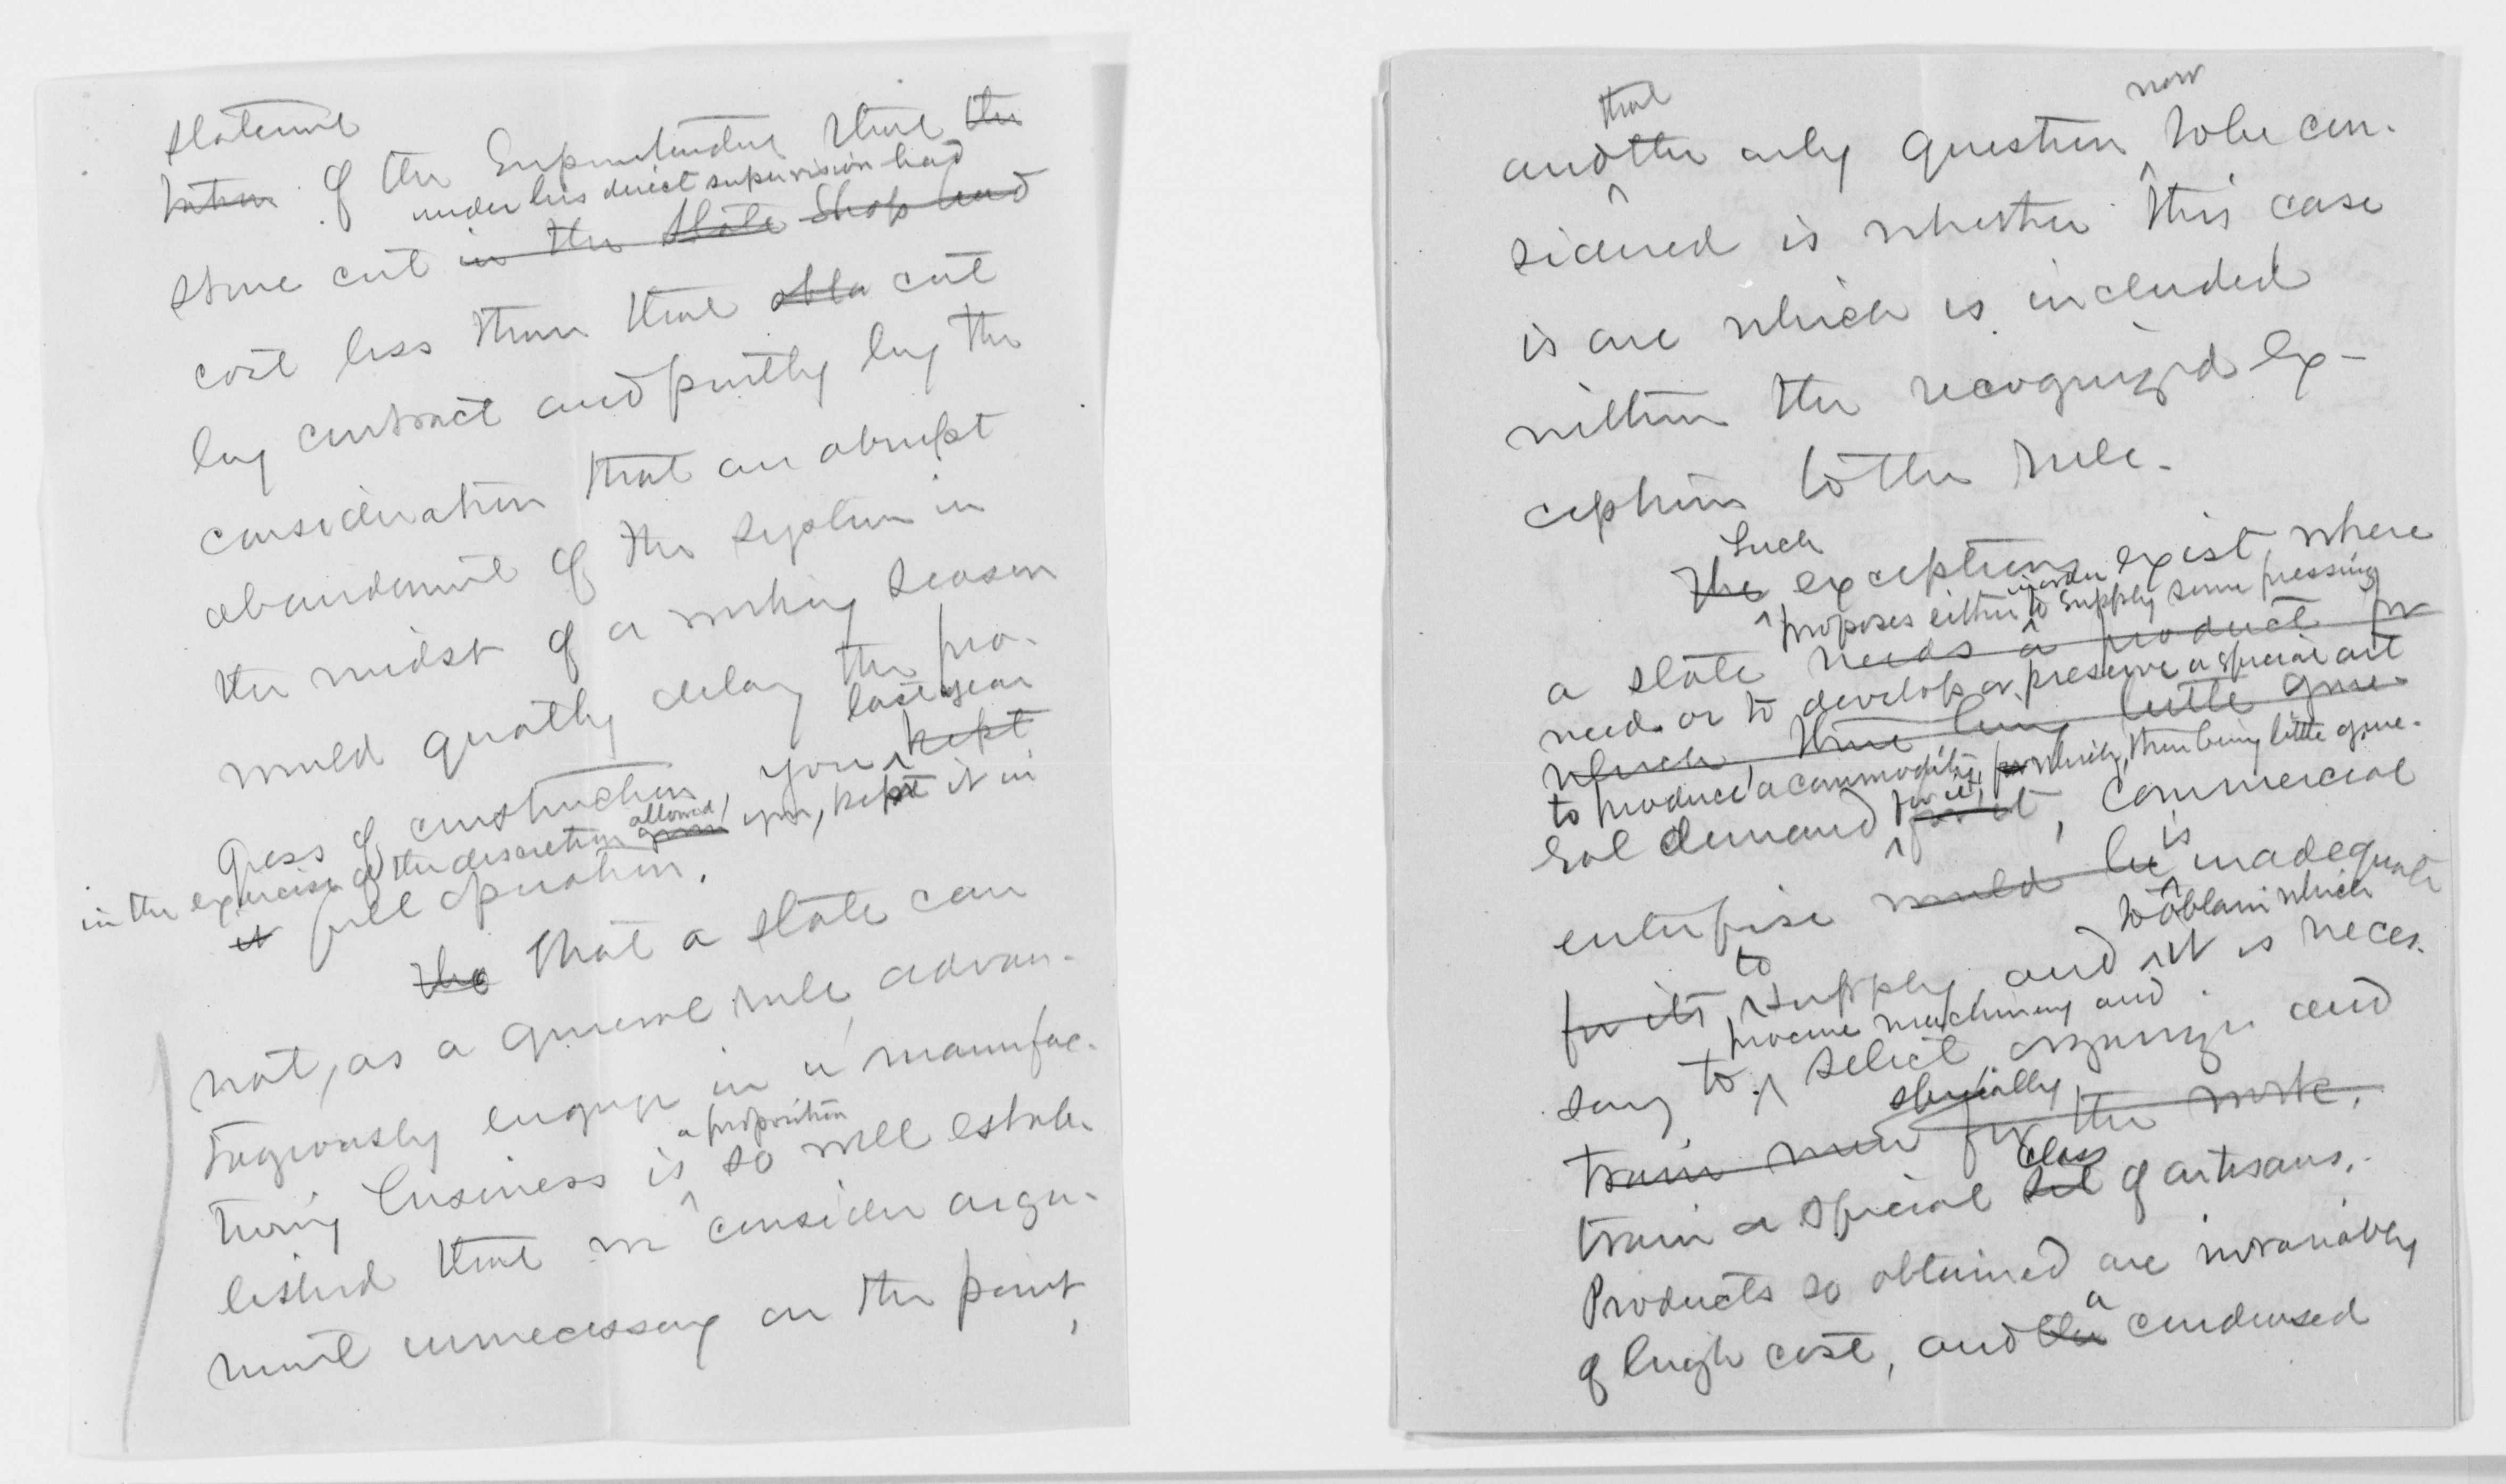 statement
of the Superintendent that the
under his direct supervision had
stone cut in the State Shop had
cost less than that cut
by contract and partly by the
consideration that an abrupt
abandonment of the system in
the midst of a working season
would greatly delay the pro-
last year
gress of construction, you kept
in the exercise of the discretion allowed you, kept it in
it full operation.
The That a state can
not, as a general rule, advan-
tageously engage in a manufac-
a proposition
turing business is so well estab-
lished that we consider argu-
ment unnecessary on the point,
that now
and the only question to be con-
sidered is whether this case
is one which is included
within the recognized ex-
ceptions to the rule.
Such
The exceptions exist, where
proposes either in order to supply some pressing
a state needs a product for
need or to develop or preserve a special art
which there being little gene-
to produce a commodity, for which, there being little gene-
ral demand for it for it, commercial
is
enterprise would be inadequate
to to obtain which
for its supply and it is neces-
procure machinery and
sary to select, organize and
specially
train men for the work.
class
train a special set of artisans.
Products so obtained are invariably
a
of high cost, and the condensed